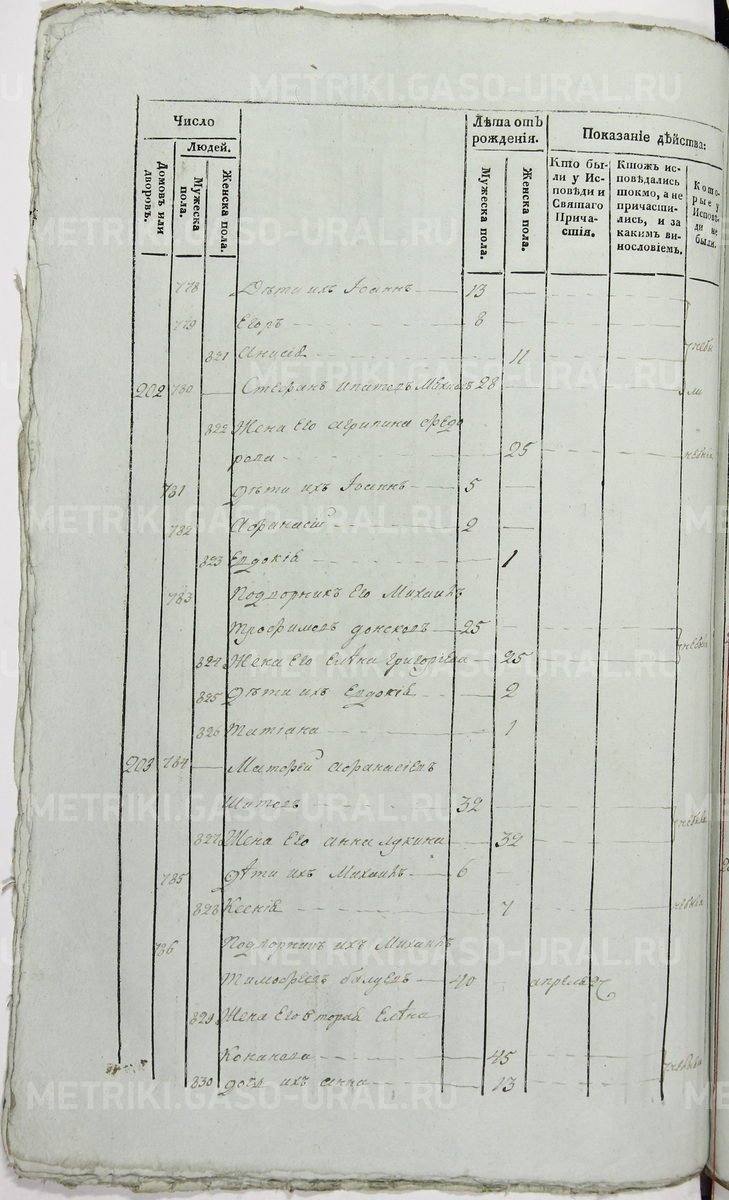 METRIKI.GASO-URAL.RU
Число
Людей.
Домовъ или дворовъ.
Мужеска пола.
Женска пола.
Лѣта отъ рожденія.
Мужеска пола.
Женска пола.
Показаніе дѣйства:
Кто были у Исповѣди и Святаго Причастія.
Ктожъ исповѣдались токмо, а не причастились, и за какимъ винословіемъ.
Которые у Исповѣди не были.
778 Дѣти ихъ Іоаннъ 13
779 Егоръ 8
821 Анисія 11
202 780 Стефанъ Ипатовъ 28
822 Жена Его Агрипина Ѳедо
рова 25 небыла
781 Дѣти ихъ Іоаннъ 5
782 Афанасій 2
823 Евдокія 1
783 Подворникъ Его Михаилъ
Трофимовъ Донсковъ 25
824 Жена Его Елѣна Григорїева 25
825 Дѣти ихъ Евдокія 2
826 Татіана 1
203 784 Матѳей Афанасіевъ
Шитовъ 32
827 Жена Его Анна Лукина 32
785 Дѣти ихъ Михаилъ 6
828 Ксенія 7
786 Подворникъ ихъ Михаилъ
Тимофѣевъ Балуевъ 40 апрель 27
829 Жена Его вторая Елѣна
Кононова 45
830 дочь ихъ Анна 13